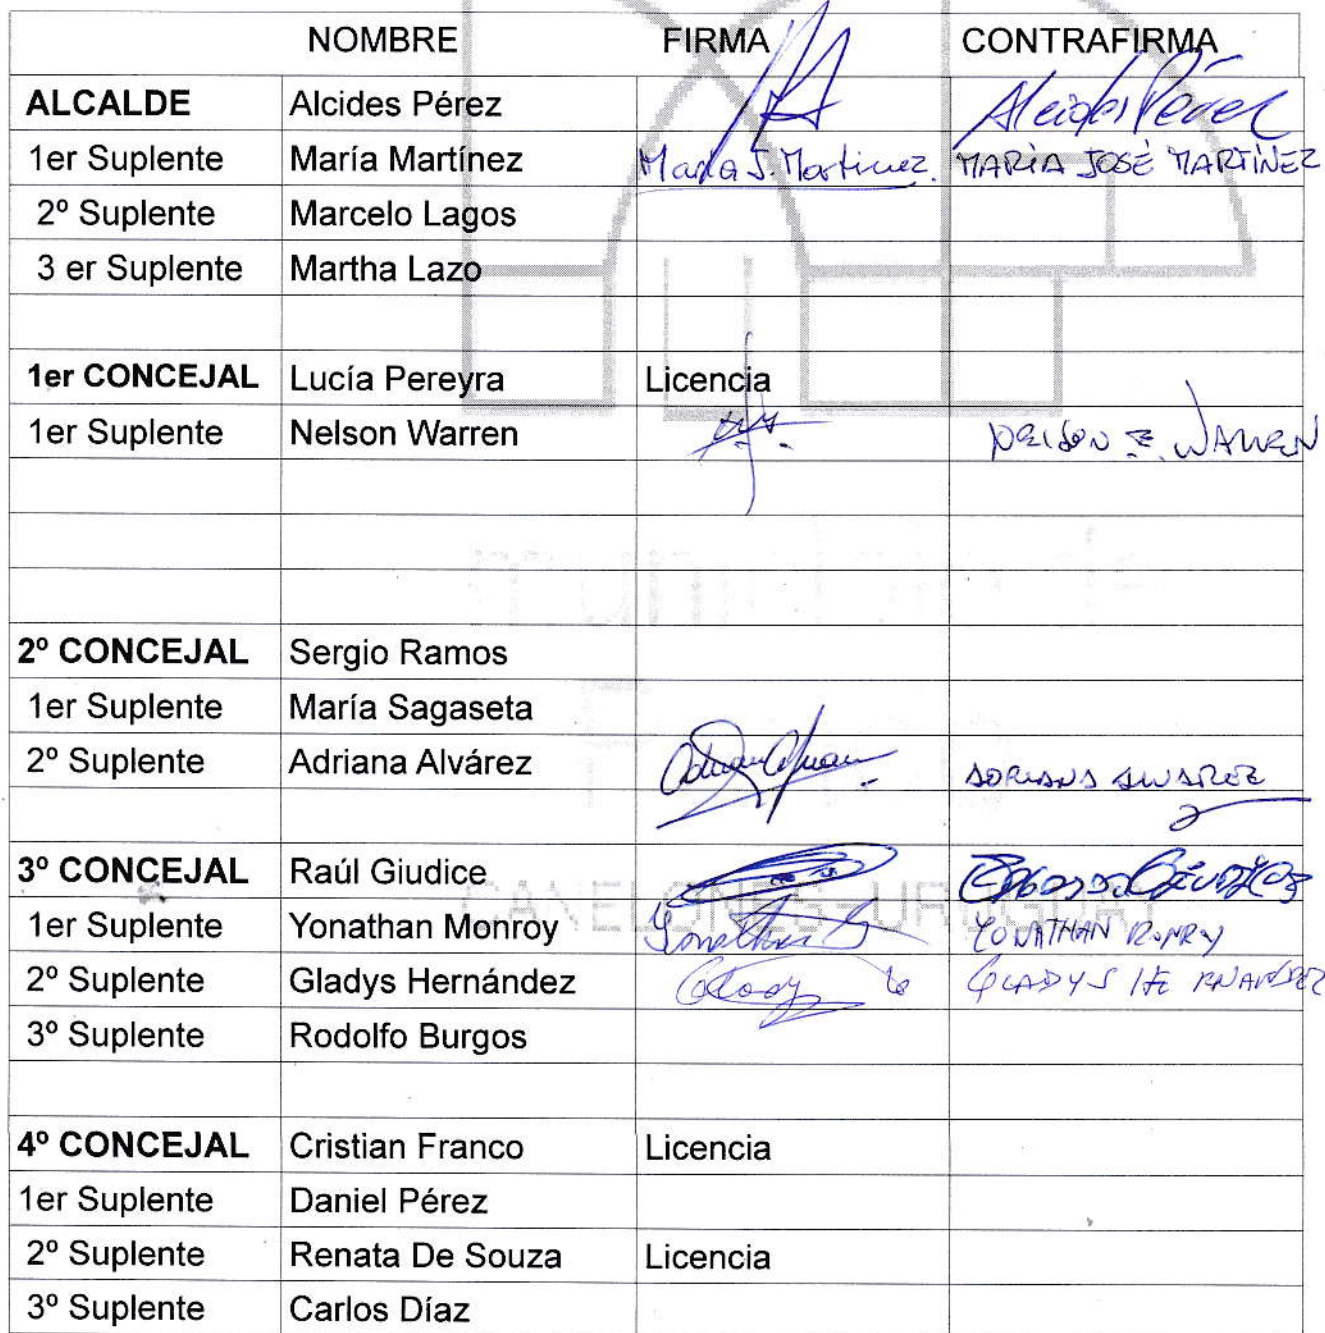 NOMBRE FIRMA CONTRAFIRMA
ALCALDE Alcides Pérez Alcides Pérez
1er Suplente María Martínez María J. Martinez. MARÍA JOSÉ MARTÍNEZ
2º Suplente Marcelo Lagos
3 er Suplente Martha Lazo
1er CONCEJAL Lucía Pereyra Licencia
1er Suplente Nelson Warren NELSON E. WARREN
2º CONCEJAL Sergio Ramos
1er Suplente María Sagaseta
2º Suplente Adriana Alvárez ADRIANA ALVAREZ
3º CONCEJAL Raúl Giudice
CANELONES-URUGUAY
1er Suplente Yonathan Monroy Yonathan YONATHAN MONROY
2º Suplente Gladys Hernández Glady GLADYS HERNANDEZ
3º Suplente Rodolfo Burgos
4º CONCEJAL Cristian Franco Licencia
1er Suplente Daniel Pérez
2º Suplente Renata De Souza Licencia
3º Suplente Carlos Díaz